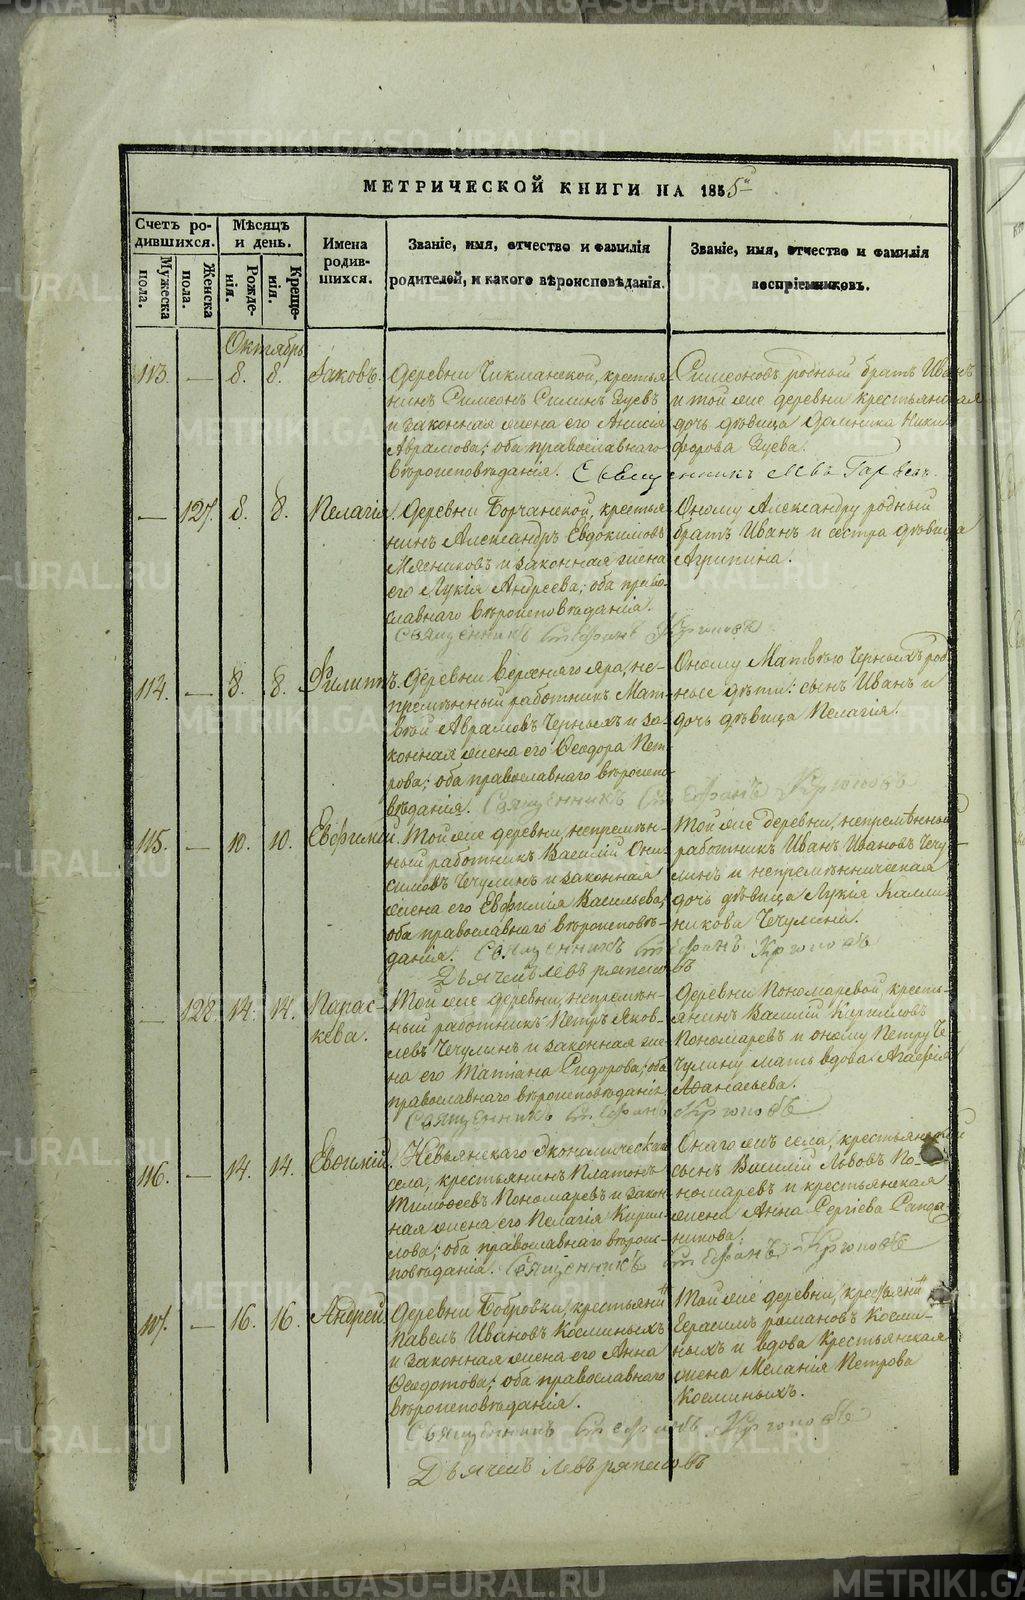 МЕТРИЧЕСКОЙ КНИГИ НА 1855
Счетъ ро-
дившихся.
Мужеска
пола.
Женска
пола.
Мѣсяцъ
и день.
Рожде-
нія.
Креще-
нія.
Имена
родив-
шихся.
Званіе, имя, отчество и фамилія
родителей, и какого вѣроисповѣданія.
Званіе, имя, отчество и фамилія
воспріемниковъ.
Октябрь
113. — 8. 8. Іаковъ.
Деревни Чикманской, крестья-
нинъ Симеонъ Силинъ Зуевъ
и законная жена его Анисія
Аврамова; оба православнаго
вѣроисповѣданія.
Симеоновъ родный братъ Иванъ
и той же деревни крестьянская
дочь дѣвица Домника Ники-
форова Зуева.
Священникъ
— 127. 8. 8. Пелагія.
Деревни Борчанской, крестья-
нинъ Александръ Евдокимовъ
Мясниковъ и законная жена
его Лукія Андреева; оба право-
славнаго вѣроисповѣданія.
Оному Александру родный
братъ Иванъ и сестра дѣвица
Агрипина.
Священникъ Стефанъ
114. — 8. 8. Филиппъ.
Деревни Верхняго Яра, не-
премѣнный работникъ Мат-
вѣй Аврамовъ Черныхъ и за-
конная жена его Ѳеодора Пет-
рова; оба православнаго вѣроиспо-
вѣданія.
Оному Матвѣю Черныхъ род-
ные дѣти: сынъ Иванъ и
дочь дѣвица Пелагія.
Священникъ Стефанъ
115. — 10. 10. Евфимій.
Той же деревни, непремѣн-
ный работникъ Василій Они-
симовъ Чечулинъ и законная
жена его Евфимія Васильева;
оба православнаго вѣроисповѣ-
данія.
Той же деревни, непремѣнный
работникъ Иванъ Ивановъ Чечу-
линъ и непремѣнническая
дочь дѣвица Лукія Калли-
никова Чечулина.
Священникъ Стефанъ
Дьячекъ
— 128. 14. 14. Парас-
кева.
Той же деревни, непремѣн-
ный работникъ Петръ Яков-
левъ Чечулинъ и законная же-
на его Татіана Сидорова; оба
православнаго вѣроисповѣданія.
Деревни Пономаревой, кресть-
янинъ Василій Кирилловъ
Пономаревъ и оному Петру Че-
чулину мать вдова Агафія
Аѳанасьева.
Священникъ Стефанъ
116. — 14. 14. Евѳимій.
Невьянскаго Экономическаго
села, крестьянинъ Платонъ
Тимоѳеевъ Пономаревъ и закон-
ная жена его Пелагія Кирил-
лова; оба православнаго вѣроис-
повѣданія.
Онаго жъ села, крестьянской
сынъ Василій Львовъ По-
номаревъ и крестьянская
жена Анна Сергіева
Священникъ Стефанъ
— 16. 16. Андрей.
Деревни Бобровки, крестьянинъ
Павелъ Ивановъ Косминыхъ
и законная жена его Анна
Ѳеодотова; оба православнаго
вѣроисповѣданія.
Той же деревни, крестьянинъ
Герасимъ Романовъ Косми-
ныхъ и вдова крестьянская
жена Меланія Петрова
Косминыхъ.
Священникъ Стефанъ
Дьячекъ
METRIKI.GASO-URAL.RU